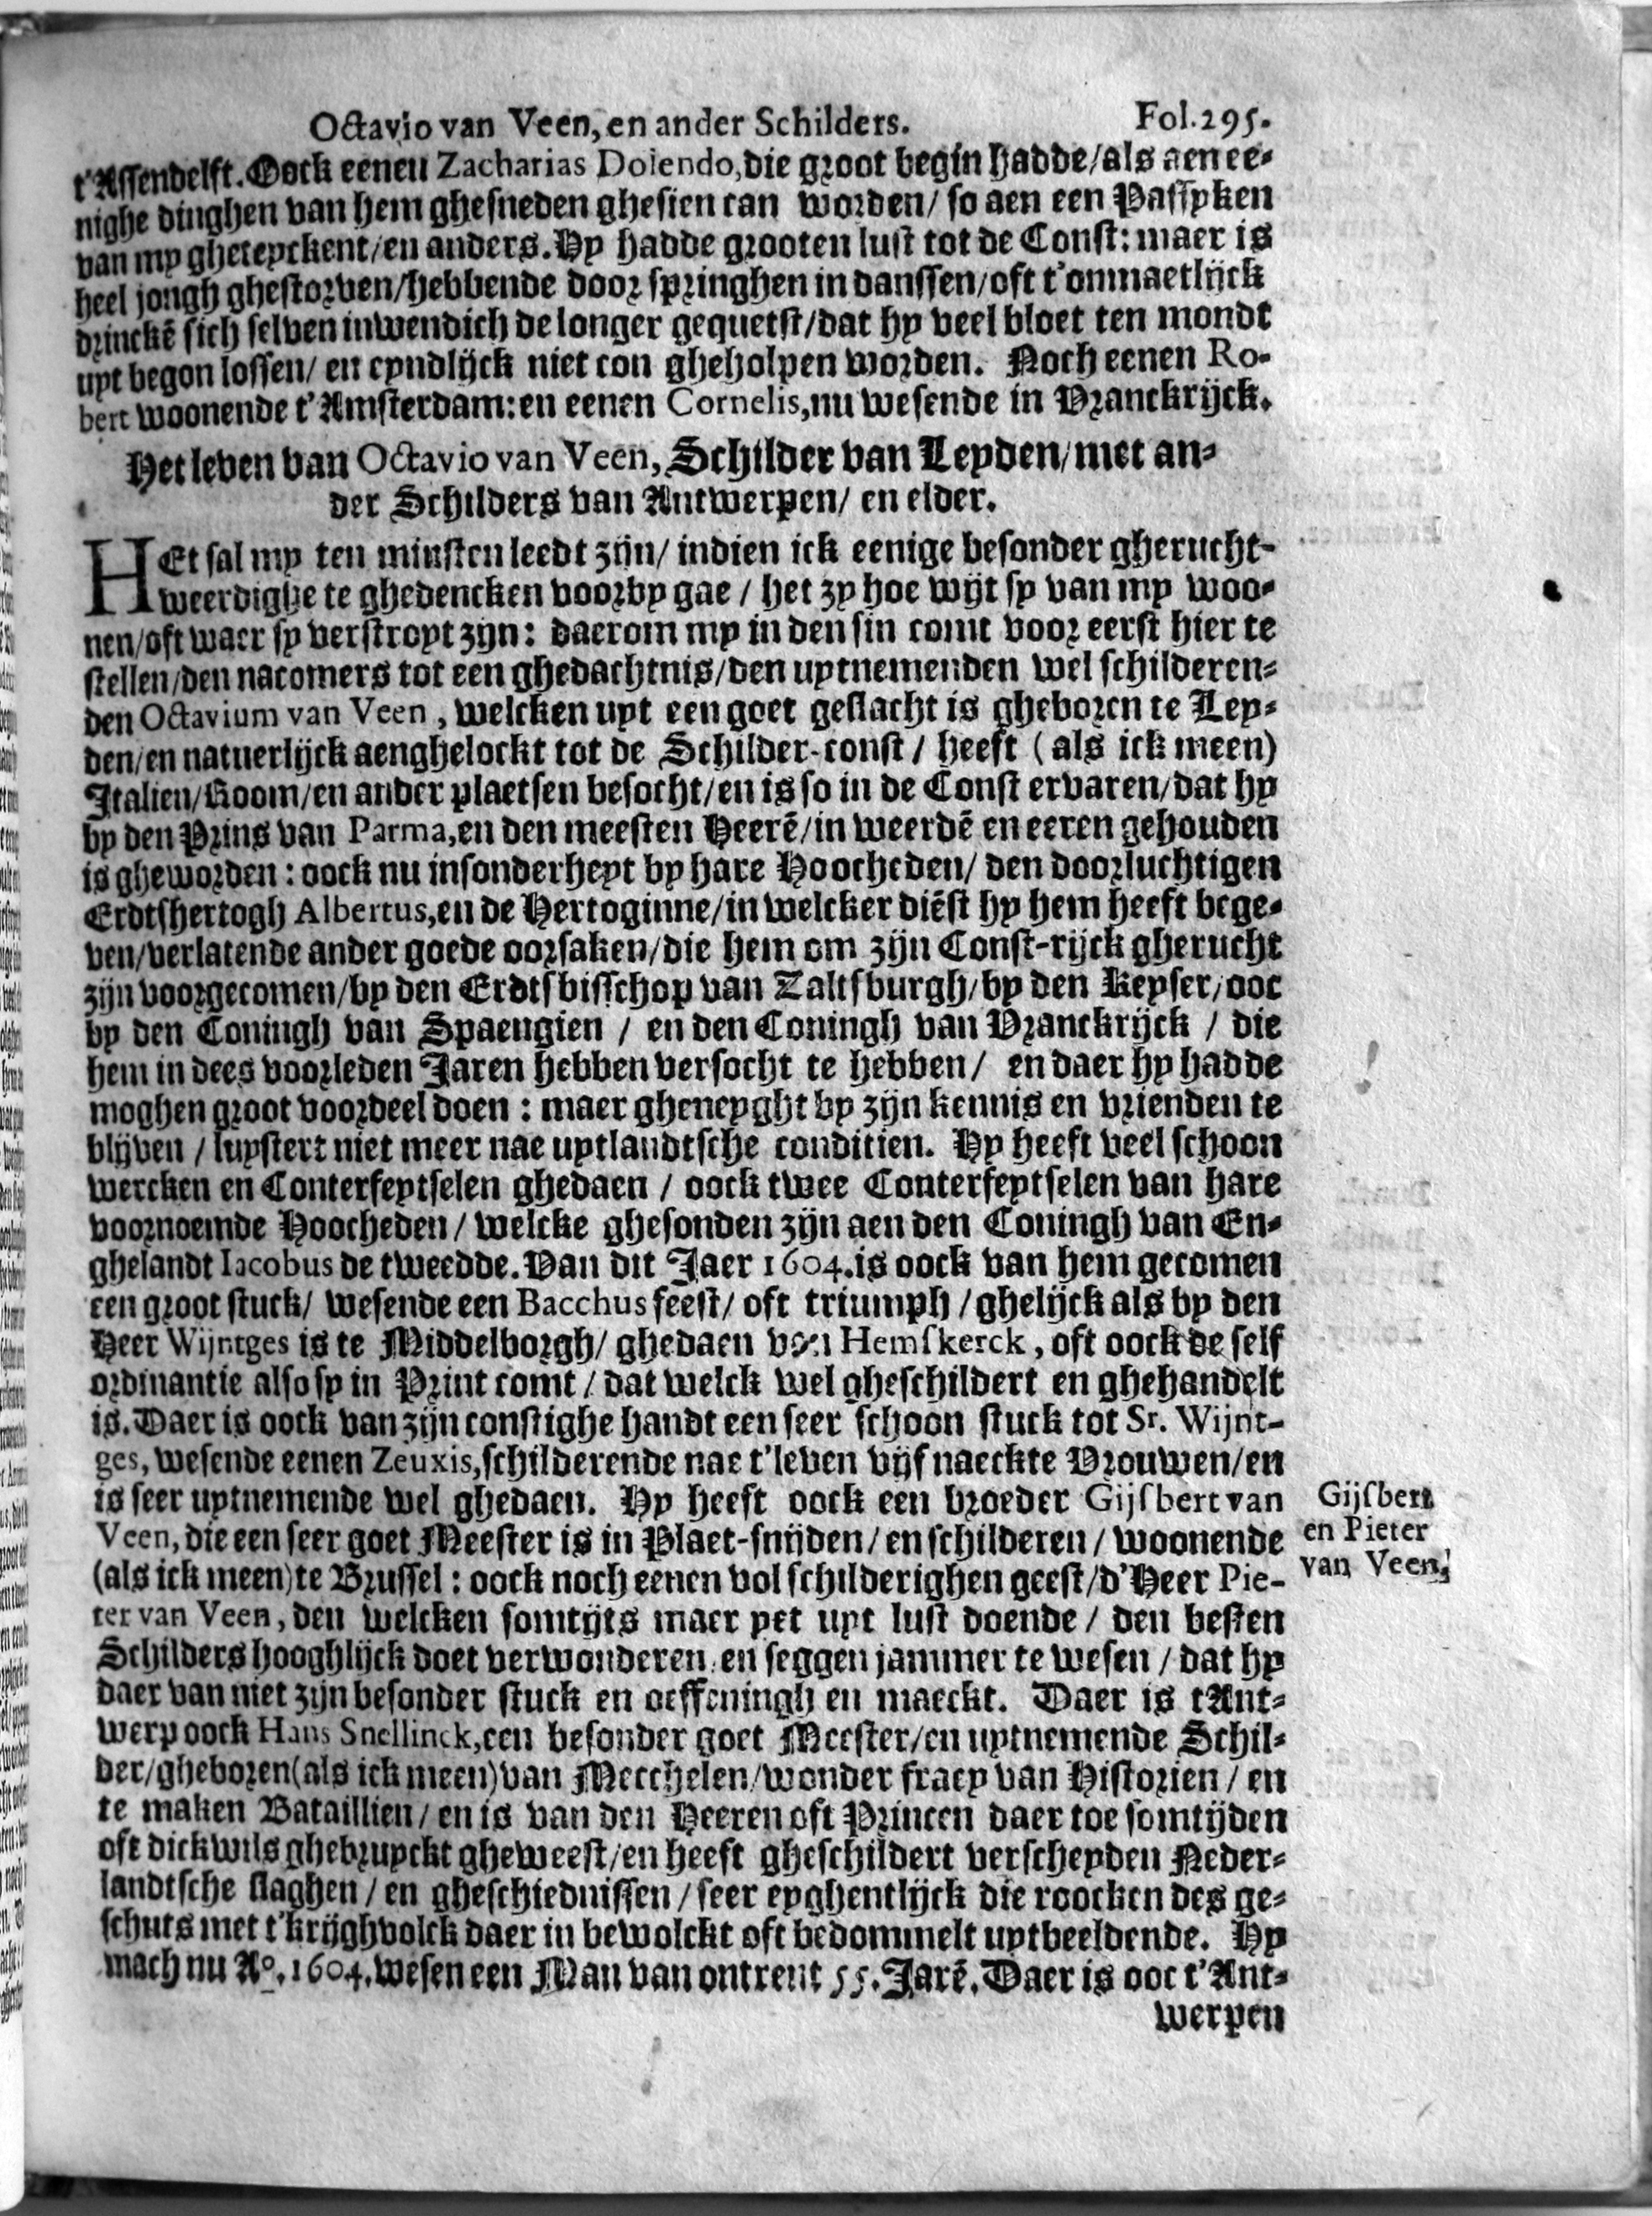 Octavio van Veen, en ander Schilders. Fol.295.
t'Assendelft. Oock eenen Zacharias Dolendo, die groot begin hadde/als aen ee-
nighe dinghen van hem ghesneden ghesien can worden/ so aen een Passyken
van my gheteyckent/en anders. Hy hadde grooten lust tot de Const: maer is
heel jongh ghestorven/hebbende door springhen in danssen/oft t'onmaetlijck
drinckē sich selven inwendich de longer gequetst/dat hy veel bloet ten mondt
uyt begon lossen/ en eyndlijck niet con gheholpen worden. Noch eenen Ro-
bert woonende t'Amsterdam: en eenen Cornelis, nu wesende in Vranckrijck.
Het leven van Octavio van Veen, Schilder van Leyden/met an-
der Schilders van Antwerpen/ en elder.
HEt sal my ten minsten leedt zijn/ indien ick eenige besonder gherucht-
weerdighe te ghedencken voorby gae / het zy hoe wijt sy van my woo-
nen/oft waer sy verstroyt zyn: daerom my in den sin comt voor eerst hier te
stellen/den nacomers tot een ghedachtnis/den uytnemenden wel schilderen-
den Octavium van Veen, welcken uyt een goet geslacht is gheboren te Ley-
den/en natuerlijck aenghelockt tot de Schilder-const / heeft (als ick meen)
Italien/Room/en ander plaetsen besocht/en is so in de Const ervaren/dat hy
by den Prins van Parma, en den meesten Heerē/in weerdē en eeren gehouden
is gheworden: oock nu insonderheyt by hare Hoocheden/ den doorluchtigen
Erdtshertogh Albertus, en de Hertoginne/in welcker diēst hy hem heeft bege-
ven/verlatende ander goede oorsaken/die hem om zijn Const-rijck gherucht
zijn voorgecomen/by den Erdtsbisschop van Zaltsburgh/by den Keyser/ooc
by den Coningh van Spaengien / en den Coningh van Vranckrijck / die
hem in dees voorleden Jaren hebben versocht te hebben/ en daer hy hadde
moghen groot voordeel doen: maer gheneyght by zijn kennis en vrienden te
blijven / luystert niet meer nae uytlandtsche conditien. Hy heeft veel schoon
wercken en Conterfeytselen ghedaen / oock twee Conterfeytselen van hare
voornoemde Hoocheden/ welcke ghesonden zijn aen den Coningh van En-
ghelandt Iacobus de tweedde. Van dit Jaer 1604. is oock van hem gecomen
een groot stuck/ wesende een Bacchus feest/ oft triumph / ghelijck als by den
Heer Wijntges is te Middelborgh/ ghedaen van Hemskerck, oft oock de self
ordinantie also sy in Print comt / dat welck wel gheschildert en ghehandelt
is. Daer is oock van zijn constighe handt een seer schoon stuck tot Sr. Wijnt-
ges, wesende eenen Zeuxis, schilderende nae t'leven vijf naeckte Vrouwen/en
is seer uytnemende wel ghedaen. Hy heeft oock een broeder Gijsbert van
Veen, die een seer goet Meester is in Plaet-snijden/ en schilderen / woonende
(als ick meen) te Brussel: oock noch eenen vol schilderighen geest/d'Heer Pie-
ter van Veen, den welcken somtijts maer yet uyt lust doende / den besten
Schilders hooghlijck doet verwonderen/en seggen jammer te wesen / dat hy
daer van niet zijn besonder stuck en oeffeningh en maeckt. Daer is t'Ant-
werp oock Hans Snellinck, een besonder goet Meester/en uytnemende Schil-
der/gheboren(als ick meen)van Mecchelen/wonder fraey van Historien / en
te maken Bataillien/ en is van den Heeren oft Princen daer toe somtijden
oft dickwils ghebruyckt gheweest/en heeft gheschildert verscheyden Neder-
landtsche slaghen / en gheschiednissen / seer eyghentlijck die roocken des ge-
schuts met t'krijghvolck daer in bewolckt oft bedommelt uytbeeldende. Hy
mach nu Ao. 1604. wesen een Man van ontrent 55. Jarē. Daer is ooc t'Ant-
werpen
Gijsbert
en Pieter
van Veen.